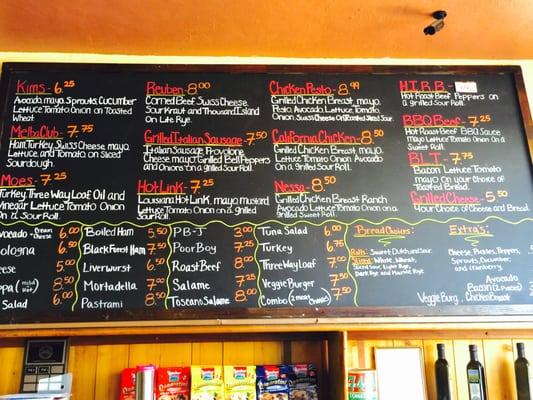 Kims - 6.25
Avocado, mayo, Sprouts, Cucumber
Lettuce Tomato Onion on Toasted
Wheat
Melba Club - 7.75
Ham, Turkey, Swiss Cheese, mayo
Lettuce, and Tomato on Sliced
Sourdough.
Moes - 7.25
Turkey, Three Way Loaf Oil and
Vinegar Lettuce Tomato Onion
On a Sour Roll.
Reuben - 8.00
Corned Beef, Swiss Cheese,
Sour Kraut and Thousand Island
On Lite Rye.
Grilled Italian Sausage - 7.50
Italian Sausage, Provolone
Cheese, mayo, Grilled Bell Peppers
And Onions on a grilled Sour Roll.
Hot Link - 7.25
Louisiana Hot Link, mayo, mustard,
Lettuce Tomato Onion on a grilled
Sour Roll.
Chicken Pesto - 8.99
Grilled Chicken Breast, mayo,
Pesto, Avocado Lettuce Tomato
Onion, Swiss Cheese on Toasted Sliced Sour.
California Chicken - 8.50
Grilled Chicken Breast, mayo,
Lettuce Tomato Onion Avocado
On a grilled Sour Roll.
Nessa - 8.50
Grilled Chicken Breast Ranch
Avocado Lettuce Tomato Onion on a
Grilled Sweet Roll
H.I.R.B.
Hot Roast Beef, Peppers on
a grilled Sour Roll.
BBQ Beef - 7.25
Hot Roast Beef BBQ Sauce
mayo Lettuce Tomato Onion on a
Sweet Roll.
B.L.T - 7.75
Bacon Lettuce Tomato
mayo on your choice of
Toasted Bread.
Grilled Cheese - 5.50
Your Choice of Cheese and Bread.
vocado - Cream Cheese 6.00
ologna 6.50
eese 5.00
ppa
Salad 6.00
Boiled Ham 5.50
Black Forest Ham 7.50
Liverwurst 6.50
Mortadella 7.00
Pastrami 8.50
PB-J 3.00
Poor Boy 7.25
Roast Beef 8.00
Salame 7.25
Toscano Salame 8.00
Tuna Salad 6.00
Turkey 6.75
Three Way Loaf 7.25
Veggie Burger 7.50
Combo (2 meats, 1 cheese) 7.50
Bread Choices:
Rolls: Sweet, Dutch, and Sour
Sliced: White, Wheat,
Sliced Sour, Light Rye
Dark Rye, and Marble Rye
Extra's:
Cheese, Pickles, Peppers,
Sprouts, Cucumber,
and Cranberry
Avocado
Bacon (2 Pieces)
Veggie Burg., Chicken Breast